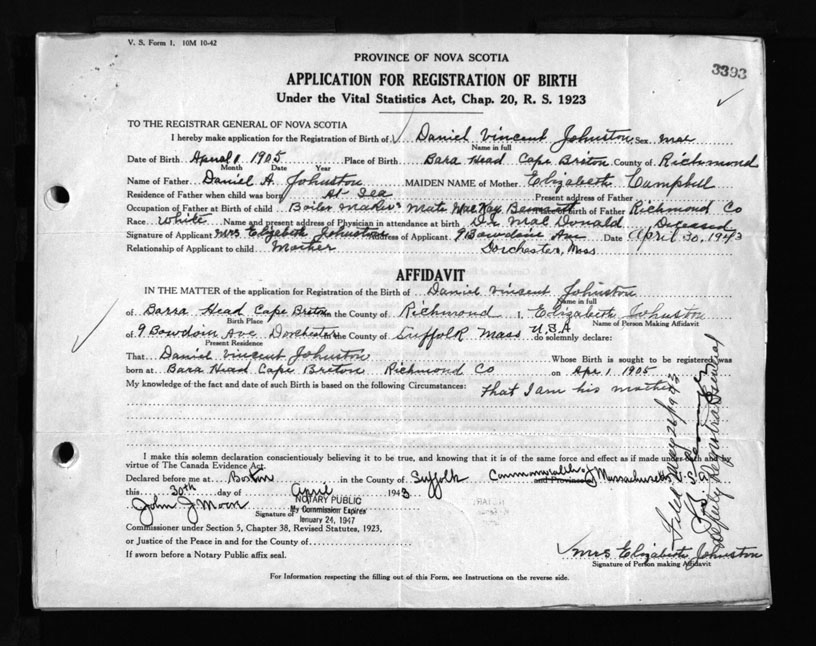 V. S. Form 1. 10M 10-42
PROVINCE OF NOVA SCOTIA
3393
APPLICATION FOR REGISTRATION OF BIRTH
Under the Vital Statistics Act, Chap. 20, R. S. 1923
TO THE REGISTRAR GENERAL OF NOVA SCOTIA
I hereby make application for the Registration of Birth of Daniel Vincent Johnston Sex Mae
Name in full
Date of Birth April 1 1905 Place of Birth Bara Head Cape Breton County of Richmond
Month Date Year
Name of Father Daniel A. Johnston MAIDEN NAME of Mother Elizabeth Campbell
Residence of Father when child was born At Sea Present address of Father
Occupation of Father at Birth of child Boiler Makers Mate Birth of Father Richmond Co
Race White Name and present address of Physician in attendance at birth Dr Mac Donald Deceased
Signature of Applicant Mrs Elizebeth Johnston Address of Applicant 9 Bowdoin Ave Date April 30, 1943
Relationship of Applicant to child Mother Dorchester, Mass
AFFIDAVIT
IN THE MATTER of the application for Registration of the Birth of Daniel Vincent Johnston
Name in full
of Barra Head Cape Breton in the County of Richmond I, Elizabeth Johnston
Birth Place Name of Person Making Affidavit
of 9 Bowdoin Ave Dorchester in the County of Suffolk Mass U.S.A do solemnly declare:
Present Residence
That Daniel Vincent Johnston Whose Birth is sought to be registered was
born at Bara Head Cape Breton Richmond Co on Apr 1 1905
My knowledge of the fact and date of such Birth is based on the following Circumstances: That I am his mother
I make this solemn declaration conscientiously believing it to be true, and knowing that it is of the same force and effect as if made under oath and by
virtue of The Canada Evidence Act.
Declared before me at Boston in the County of Suffolk and Province of Commonwealth of Massachusetts
this 30th day of April 1943
NOTARY PUBLIC
John J Moon Signature of
My Commission Expires
January 24, 1947
Commissioner under Section 5, Chapter 38, Revised Statutes, 1923,
or Justice of the Peace in and for the County of
If sworn before a Notary Public affix seal.
Mrs Elizabeth Johnston
Signature of Person making Affidavit
For Information respecting the filling out of this Form, see Instructions on the reverse side.
Filed May 26/1943
Deputy Registrar General